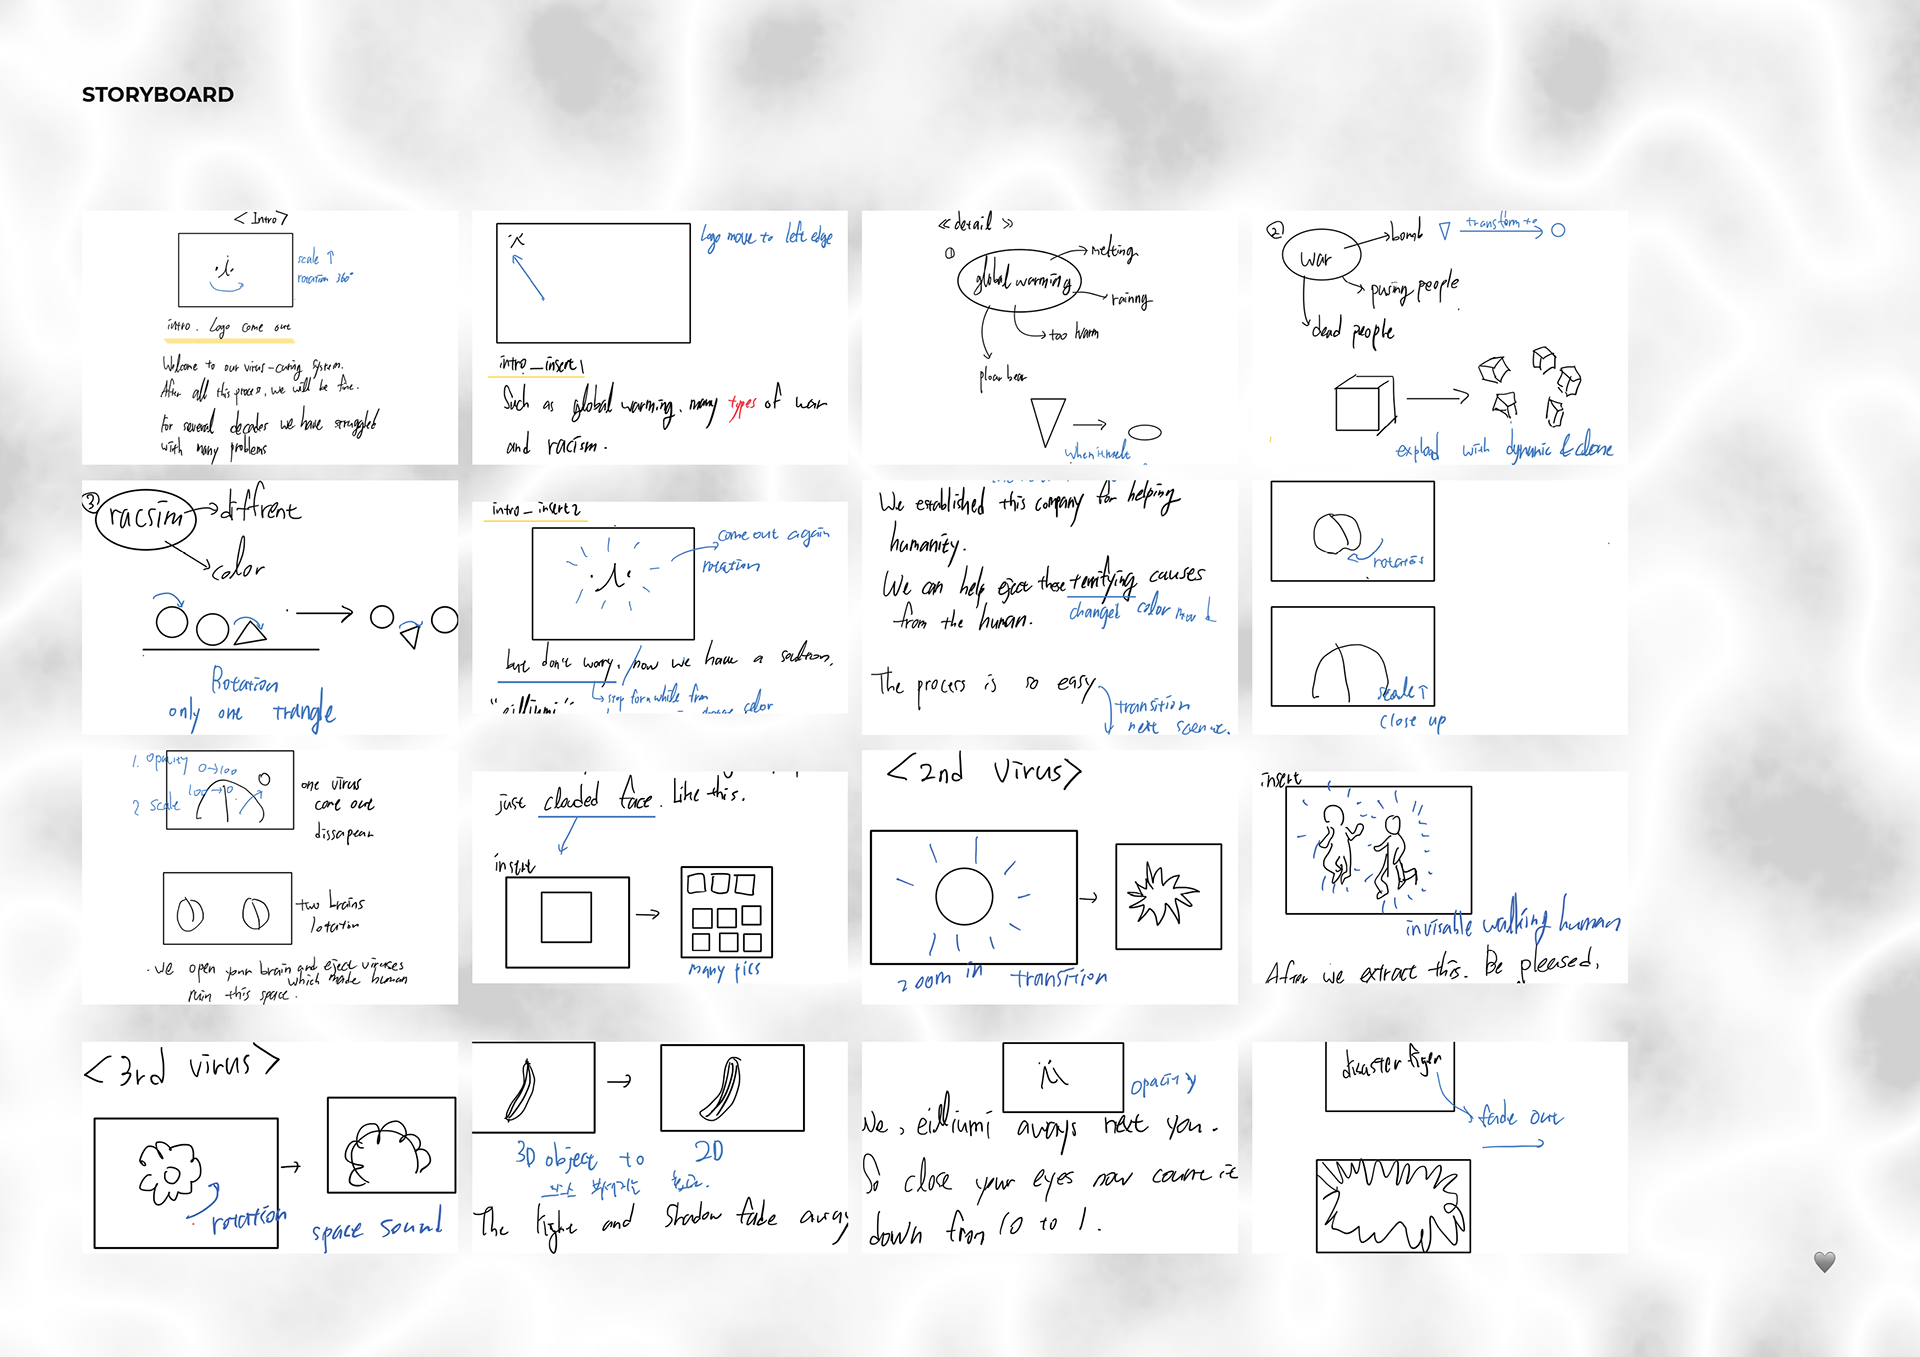 STORYBOARD
<Intro>
scale ↑
rotation 360°
intro. Logo come out
Welcome to our virus-curing system.
After all this process, we will be fine.
For several decades we have struggled
with many problems
Logo move to left edge
intro_insert1
Such as global warming. many types of war
and racism.
<<detail>>
①
global warming
melting
rainng
too warm
ploar bear
when it melt
②
war
bomb
transform to
pusing people
dead people
explod with dynamic & clone
③
racsim
diffrent
color
Rotation
only one trangle
intro_insert2
come out again
rotation
but don't worry, now we have a solution.
stop for a while from
"eilliumi"
color
We established this company for helping
humanity.
We can help eject these terrifying causes
changet color
from the human.
The process is so easy
transition
next scene.
rotates
scale ↑
close up
1. opacity
0→100
100→0
2 scale
one virus
come out
dissapear
two brains
rotation
. we open your brain and eject viruses
which made human
ruin this space.
just clouded face. Like this.
insert
many pics
<2nd Virus>
zoom in transition
insert
invisable walking human
After we extract this. Be pleased.
<3rd virus>
rotation
space sound
3D object to 2D
The light and shadow fade away
opacity
We, eilliumi aways next you.
So close your eyes now count it
down from 10 to 1.
disaster
fade out